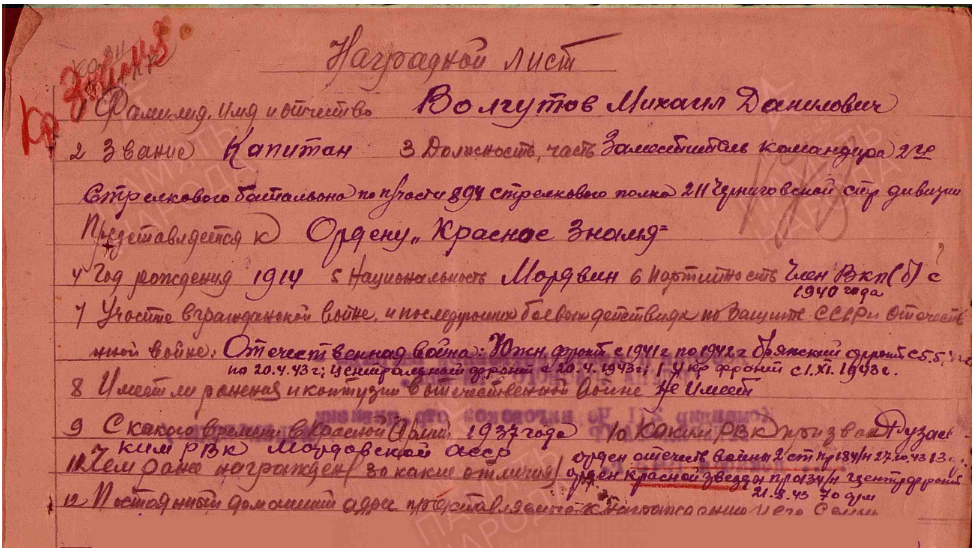 Наградной лист
Фамилия, имя и отчество Волгутов Михаил Данилович
2 Звание Капитан 3 Должность, часть Заместитель командира 2го
Стрелкового батальона по п/части 894 стрелкового полка 211 Черниговской стр дивизии
Представляется к Ордену „Красное Знамя"
4 Год рождения 1914 5 Национальность Мордвин 6 Партийность Член ВКП(б) с
1940 года
7 Участие в гражданской войне, и последующих боевых действиях по защите СССР и отечеств
нной войне: Отечественная война: Южн фронт с 1941г по 1942г Брянский фронт с 5.5.
по 20.4.43г; Центральный фронт с 20.4.1943г; 1 Укр фронт с 1.XI.1943г.
8 Имеет ли ранения и контузии в отечественной войне Не имеет
9 С какого времени в Красной Армии 1937 года 10 Каким РВК призван
ким РВК Мордовской АССР
орден отечеств войны 2 ст
11 Чем ранее награжден (за какие отличия) орден красной звезды
21.8.43
12 Постоянный домашний адрес представляемого к награждению и его семьи